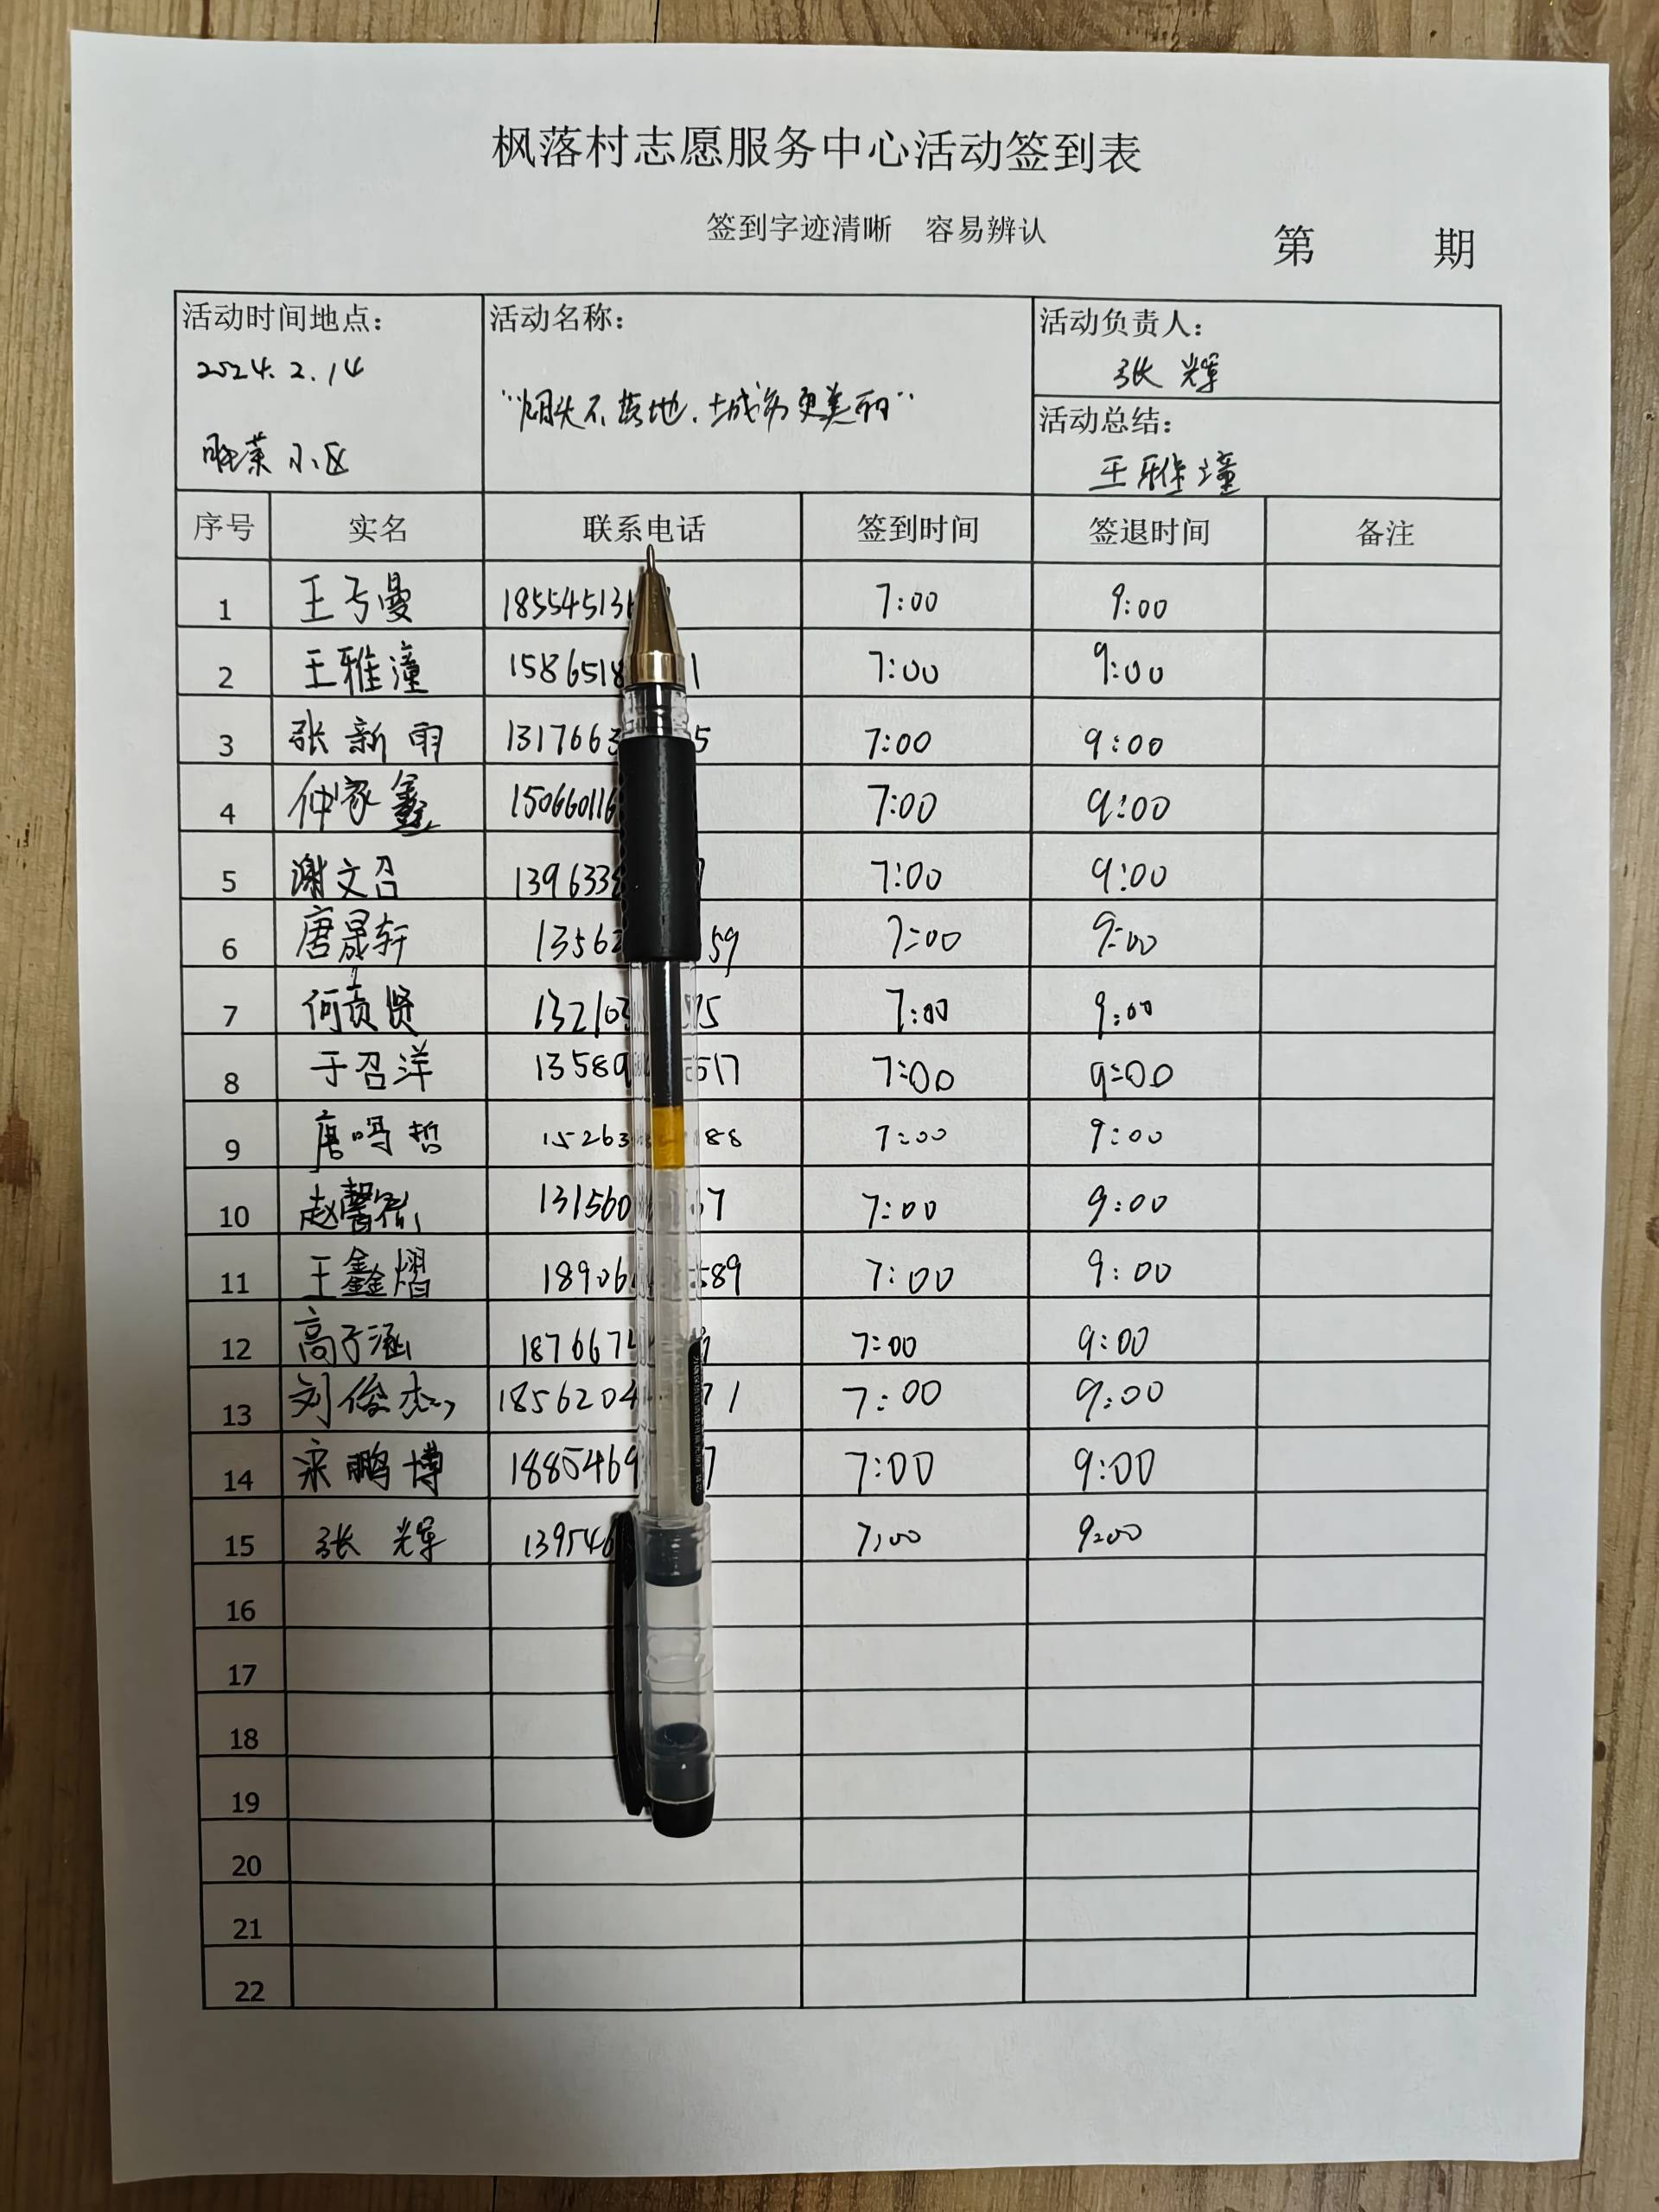 枫落村志愿服务中心活动签到表
签到字迹清晰 容易辨认
第 期
活动时间地点： 活动名称： 活动负责人：
2024.2.14 张辉
"烟头不落地，城市更美丽"
小区 活动总结：
王雅潼
序号 实名 联系电话 签到时间 签退时间 备注
1 王亐曼 18554513 7:00 9:00
2 王雅潼 1586518 1 7:00 9:00
3 张新雨 1317663 5 7:00 9:00
4 仲家鑫 150660116 7:00 9:00
5 谢文召 139633 7:00 9:00
6 唐晟轩 1356 59 7:00 9:00
7 何贞贤 13210 5 7:00 9:00
8 于召洋 13589 517 7:00 9:00
9 唐鸣哲 15263 88 7:00 9:00
10 赵馨 131560 7 7:00 9:00
11 王鑫熠 18906 589 7:00 9:00
12 高子涵 187667 7:00 9:00
13 刘俊杰 1856204 71 7:00 9:00
14 宋鹏博 1885469 7 7:00 9:00
15 张辉 139546 7:00 9:00
16
17
18
19
20
21
22